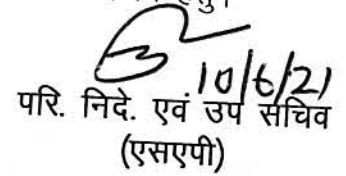 10/6/21
परि. निदे. एवं उप सचिव
(एसएपी)